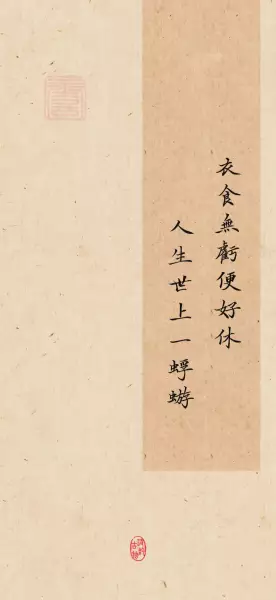 衣食無虧便好休
人生世上一蜉蝣